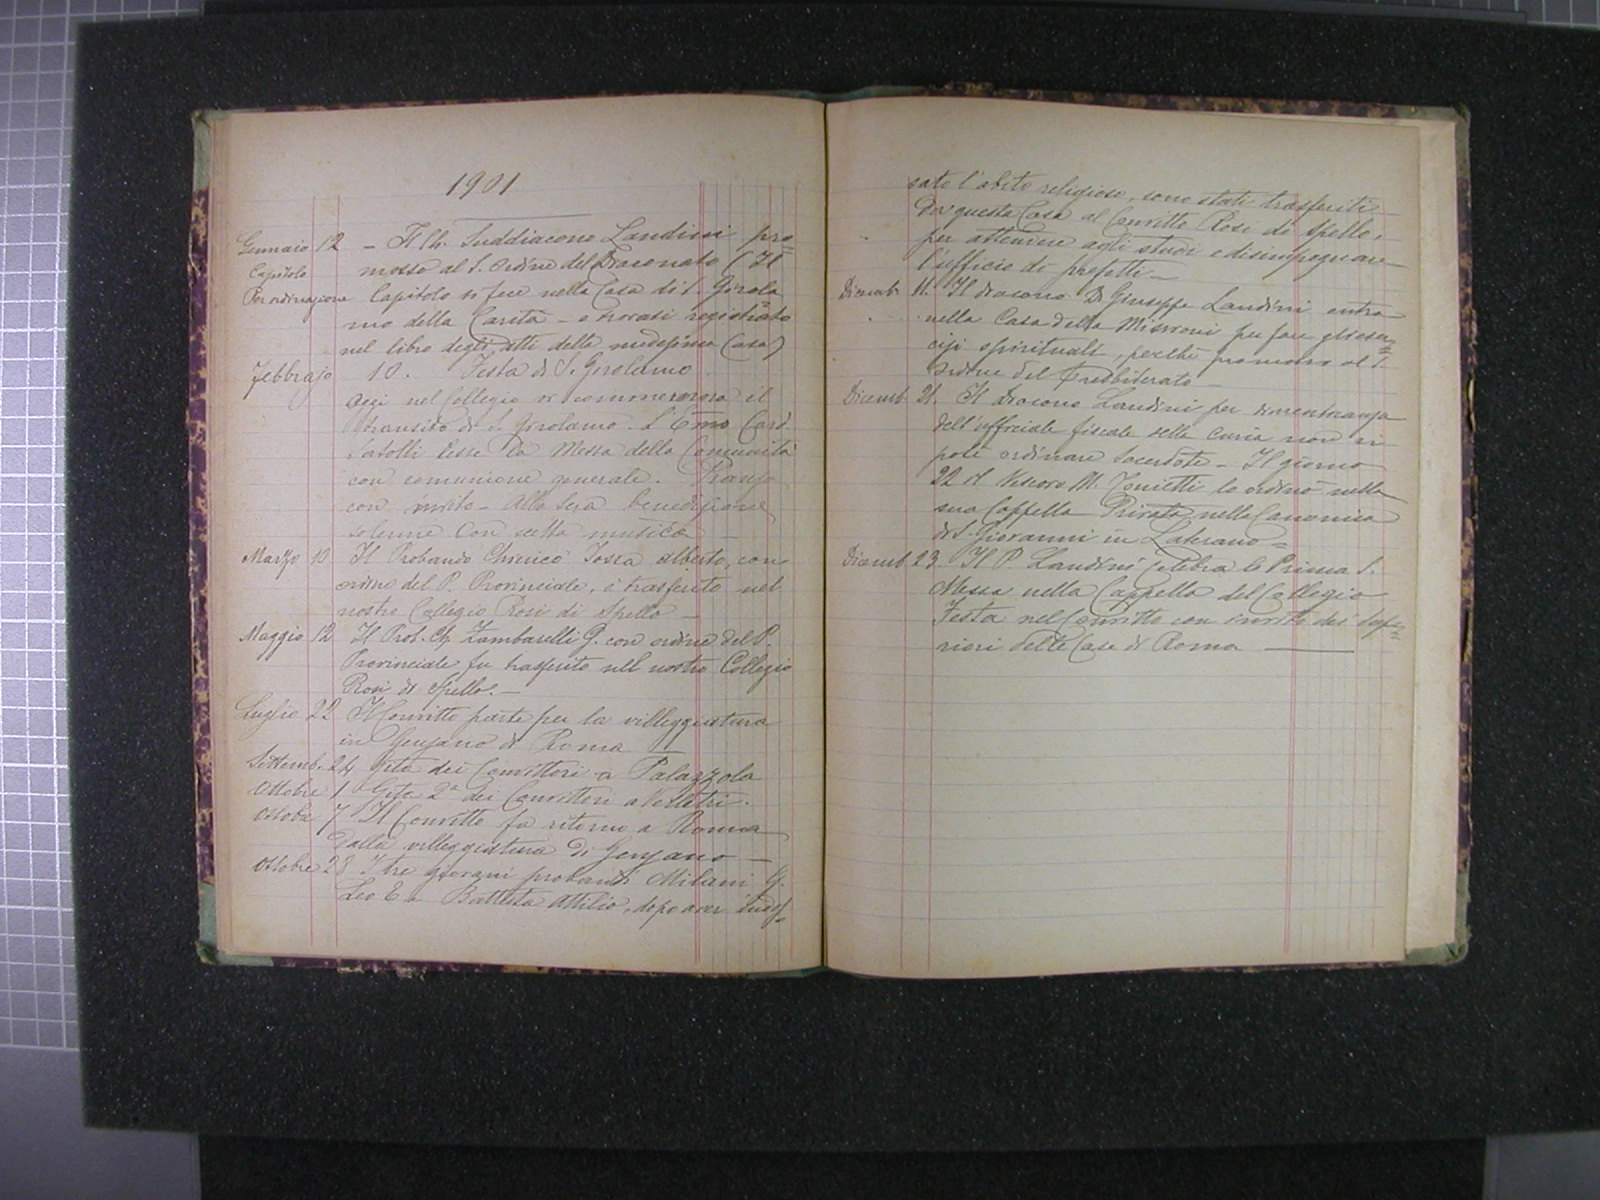 1901
Gennaio 12 – Il Ch. Suddiacono Landini pro=
Capitolo mosso al S. Ordine del Diaconato (Il
Per ordinazione Capitolo si fece nella Casa di S. Girola
mo della Carità – e trovasi registrato
nel libro degli atti della medesima Casa)
Febbrajo 10. Festa di S. Girolamo.
Oggi nel Collegio si commemorava il
transito di S. Girolamo. L'Emo Card.
Satolli lesse la Messa della Comunità
con comunione generale. Pranzo
con invito – Alla sera benedizione
solenne con scelta musica –
Marzo 10 Il Probando Chierico Alberto, con
ordine del P. Provinciale, è trasferito nel
nostro Collegio Rosi di Spello –
Maggio 12 Il Prob. Ch. Zambarelli G. con ordine del P.
Provinciale fu trasferito nel nostro Collegio
Rosi di Spello. –
Luglio 22 Il Convitto parte per la villeggiatura
in Genzano di Roma –
Settemb. 24 Gita dei Convittori a Palazzola
Ottobre 1 Gita 2a dei Convittori a Velletri.
Ottobre 7 Il Convitto fa ritorno a Roma
dalla villeggiatura di Genzano –
Ottobre 28 I tre giovani probandi Milani G.
Leo E. e Battista Attilio, dopo aver indos=
sato l'abito religioso, sono stati trasferiti
da questa Casa al Convitto Rosi di Spello,
per attendere agli studi e disimpegnare
l'ufficio di prefetti. –
Dicemb. 11. Il diacono D. Giuseppe Landini entra
nella Casa della Missioni per fare gli eser=
cizi spirituali, perché promosso al S.
Ordine del Presbiterato –
Dicemb. 21. Il Diacono Landini per dimenticanza
dell'officiale fiscale della Curia non si
poté ordinare Sacerdote – Il giorno
22 il Vescovo M. lo ordinò nella
sua Cappella Privata nella Canonica
di S. Giovanni in Laterano =
Dicemb 23. Il P. Landini celebra la Prima S.
Messa nella Cappella del Collegio
Festa nel Convitto con invito dei Supe=
riori delle Case di Roma –